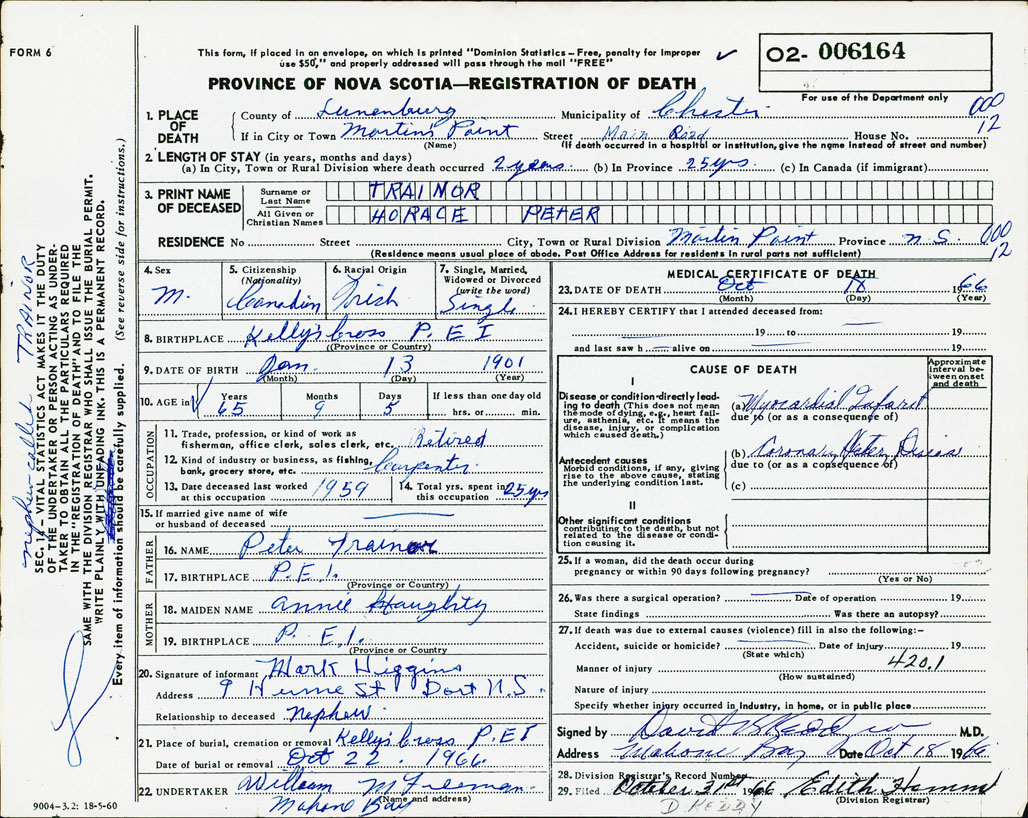 FORM 6
This form, if placed in an envelope, on which is printed "Dominion Statistics – Free, penalty for improper
use $50," and properly addressed will pass through the mail "FREE"
02- 006164
For use of the Department only
PROVINCE OF NOVA SCOTIA—REGISTRATION OF DEATH
1. PLACE OF DEATH
County of Lunenburg Municipality of Chester 000
If in City or Town Martin's Point Street Main Road House No. 12
(Name) (If death occurred in a hospital or institution, give the name instead of street and number)
2. LENGTH OF STAY (in years, months and days)
(a) In City, Town or Rural Division where death occurred 2 years (b) In Province 25 yrs. (c) In Canada (if immigrant)
3. PRINT NAME OF DECEASED
Surname or Last Name TRAINOR
All Given or Christian Names HORACE PETER
RESIDENCE No Street City, Town or Rural Division Martin Point Province N.S. 000
12
(Residence means usual place of abode. Post Office Address for residents in rural parts not sufficient)
4. Sex M.
5. Citizenship (Nationality) Canadin
6. Racial Origin Irish
7. Single, Married, Widowed or Divorced (write the word) Single
8. BIRTHPLACE Kelly's Cross P.E I
(Province or Country)
9. DATE OF BIRTH Jan. 13 1901
(Month) (Day) (Year)
10. AGE in Years Months Days If less than one day old
65 9 5 hrs. or min.
OCCUPATION
11. Trade, profession, or kind of work as
fisherman, office clerk, sales clerk, etc. Retired
12. Kind of industry or business, as fishing,
bank, grocery store, etc. Carpenter
13. Date deceased last worked at this occupation 1959
14. Total yrs. spent in this occupation 25 yrs
15. If married give name of wife
or husband of deceased
FATHER
16. NAME Peter Trainor
17. BIRTHPLACE P.E.I.
(Province or Country)
MOTHER
18. MAIDEN NAME Annie Haughty
19. BIRTHPLACE P. E.I.
(Province or Country
20. Signature of informant Mark Higgins
Address 9 Hume St Dart N.S.
Relationship to deceased Nephew.
21. Place of burial, cremation or removal Kelly's Cross P.EI
Date of burial or removal Oct 22. 1966.
22. UNDERTAKER William M Freeman
(Name and address)
Mahone Bay
9004-3.2: 18-5-60
MEDICAL CERTIFICATE OF DEATH
23. DATE OF DEATH Oct 18 1966
(Month) (Day) (Year)
24. I HEREBY CERTIFY that I attended deceased from:
19 to 19
and last saw h alive on 19
CAUSE OF DEATH
Approximate interval between onset and death
I
Disease or condition directly leading to death (This does not mean the mode of dying, e.g., heart failure, asthenia, etc. It means the disease, injury, or complication which caused death.)
(a) Myocardial Infarct
due to (or as a consequence of)
Antecedent causes
Morbid conditions, if any, giving rise to the above cause, stating the underlying condition last.
(b) Coronary
due to (or as a consequence of)
(c)
II
Other significant conditions
contributing to the death, but not related to the disease or condition causing it.
25. If a woman, did the death occur during
pregnancy or within 90 days following pregnancy?
(Yes or No)
26. Was there a surgical operation? Date of operation 19
State findings Was there an autopsy?
27. If death was due to external causes (violence) fill in also the following:–
Accident, suicide or homicide? Date of injury 19
(State which)
420.1
Manner of injury
(How sustained)
Nature of injury
Specify whether injury occurred in industry, in home, or in public place
Signed by David M.D.
Address Mahone Bay Date Oct 18 1966
28. Division Registrar's Record Number
29. Filed October 31st 1966 Edith
(Division Registrar)
D. KEDDY
nephew called TRAINOR
SEC. 14 – VITAL STATISTICS ACT MAKES IT THE DUTY
OF THE UNDERTAKER OR PERSON ACTING AS UNDER-
TAKER TO OBTAIN ALL THE PARTICULARS REQUIRED
IN THE "REGISTRATION OF DEATH" AND TO FILE THE
SAME WITH THE DIVISION REGISTRAR WHO SHALL ISSUE THE BURIAL PERMIT.
WRITE PLAINLY WITH UNFADING INK. THIS IS A PERMANENT RECORD.
Every item of information should be carefully supplied. (See reverse side for instructions.)